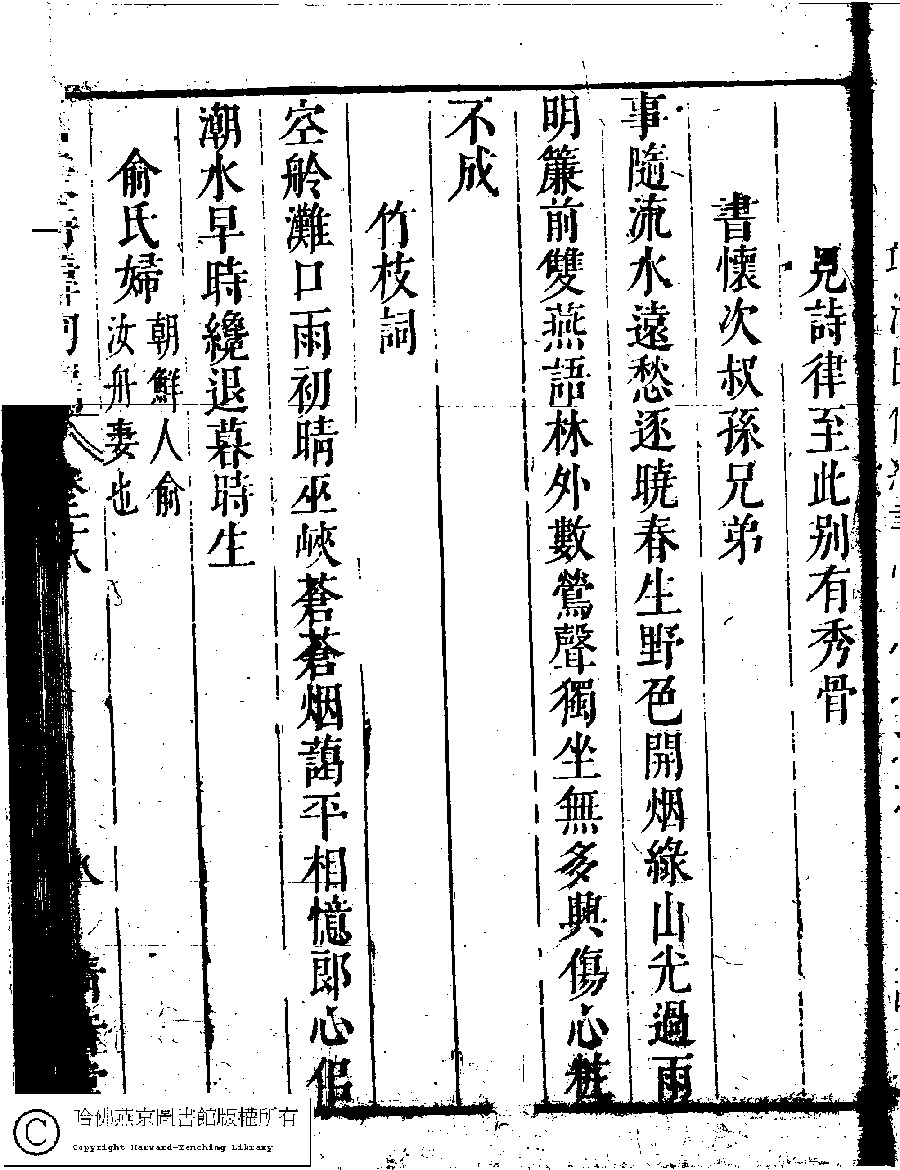 見詩律至此別有秀骨
書懷次叔孫兄弟
事隨流水遠愁逐曉春生野色開烟綠山光過雨
明簾前雙燕語林外數鶯聲獨坐無多興傷心粧
不成
竹枝詞
空舲灘口雨初晴巫峽蒼蒼烟藹平相憶郎心佀
潮水早時纔退暮時生
俞氏婦 朝鮮人俞
汝舟妻也
哈佛燕京圖書館版權所有
Copyright Harvard-Yenching Library